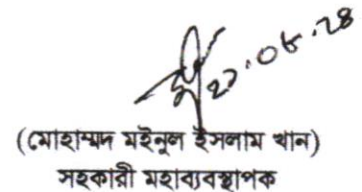 (মোহাম্মদ মইনুল ইসলাম খান)
সহকারী মহাব্যবস্থাপক